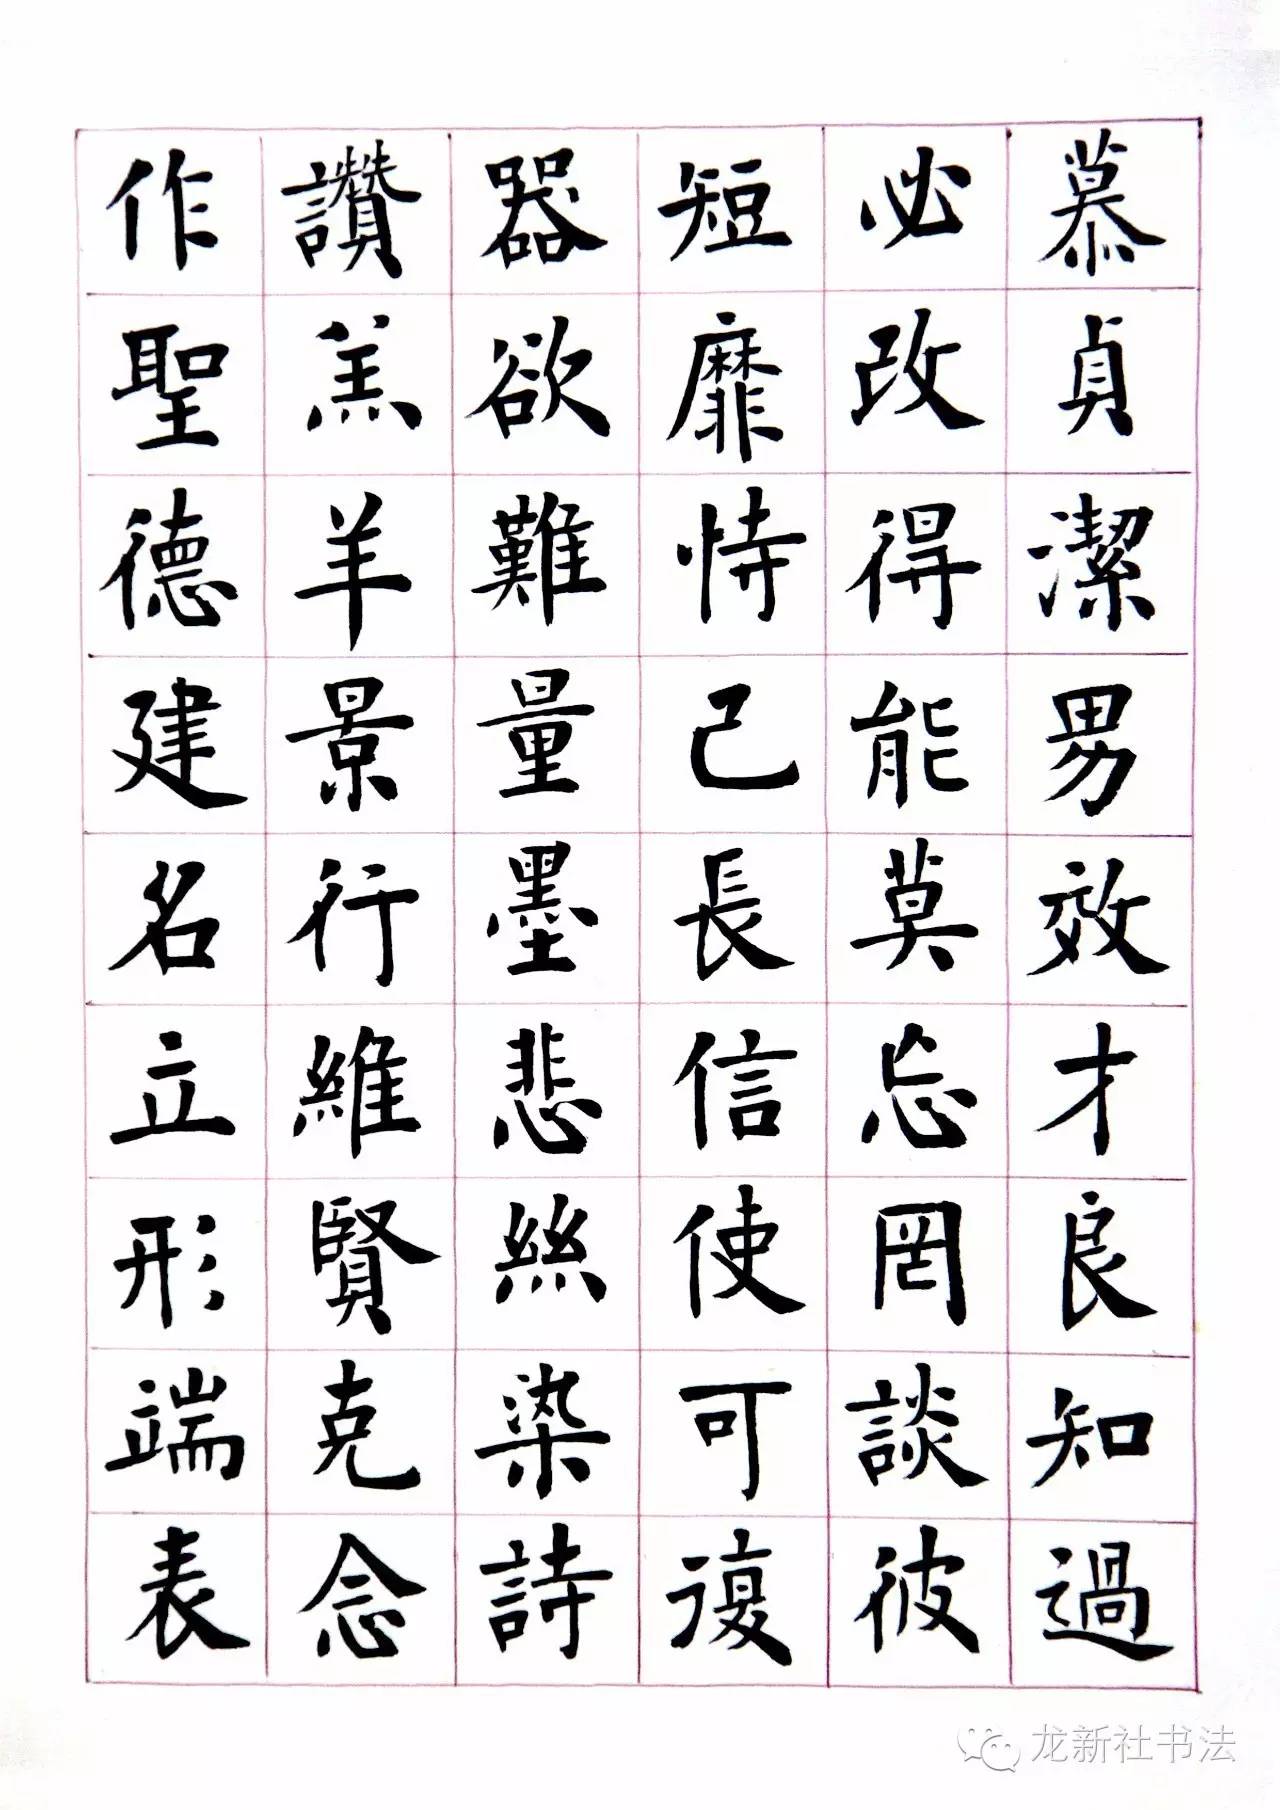 慕貞潔男效才良知過
必改得能莫忘罔談彼
短靡恃己長信使可復
器欲難量墨悲絲染詩
讚羔羊景行維賢克念
作聖德建名立形端表
龙新社书法